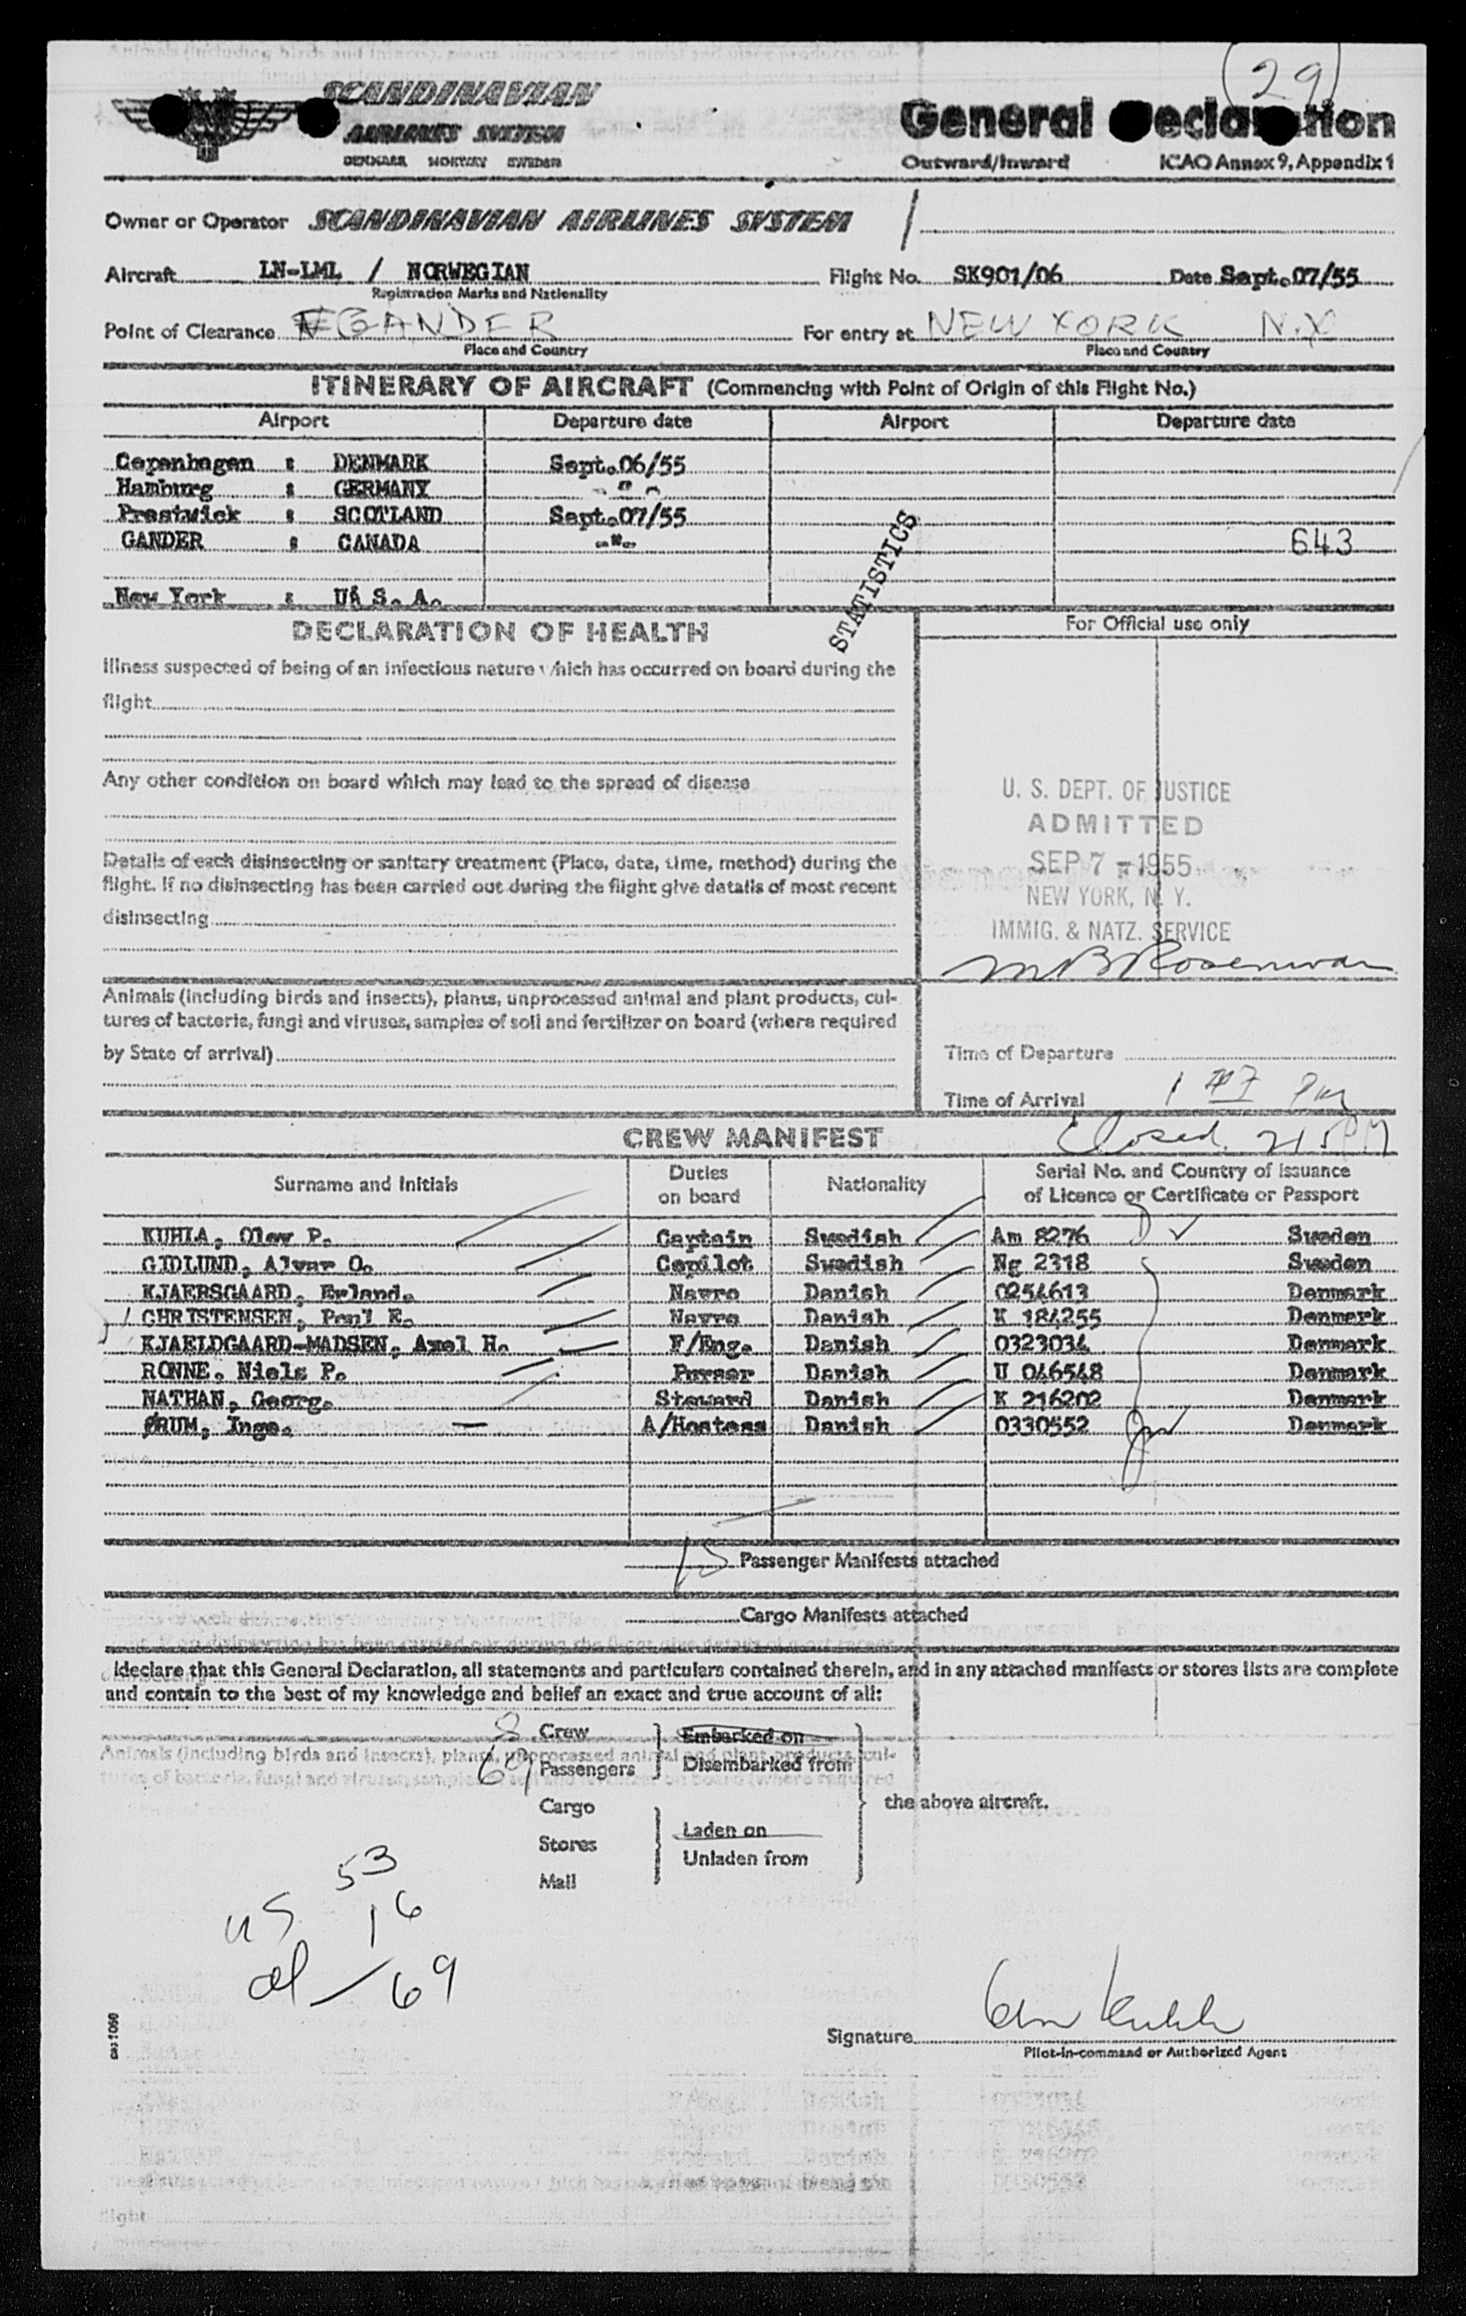 (29)
SCANDINAVIAN
AIRLINES SYSTEM
DENMARK NORWAY SWEDEN
General Declaration
Outward/Inward ICAO Annex 9, Appendix 1
Owner or Operator SCANDINAVIAN AIRLINES SYSTEM
Aircraft LN-LML / NORWEGIAN Flight No. SK901/06 Date Sept.07/55
Registration Marks and Nationality
Point of Clearance GANDER For entry at NEW YORK N.Y
Place and Country Place and Country
ITINERARY OF AIRCRAFT (Commencing with Point of Origin of this Flight No.)
Airport Departure date Airport Departure date
Copenhagen : DENMARK Sept.06/55
Hamburg : GERMANY -"-
Prestwick : SCOTLAND Sept.07/55
GANDER : CANADA -"- 643
New York : U. S. A.
STATISTICS
DECLARATION OF HEALTH For Official use only
Illness suspected of being of an infectious nature which has occurred on board during the
flight
Any other condition on board which may lead to the spread of disease
U. S. DEPT. OF JUSTICE
ADMITTED
SEP 7 - 1955
NEW YORK, N. Y.
IMMIG. & NATZ. SERVICE
Details of each disinsecting or sanitary treatment (Place, date, time, method) during the
flight. If no disinsecting has been carried out during the flight give details of most recent
disinsecting
Animals (including birds and insects), plants, unprocessed animal and plant products, cul-
tures of bacteria, fungi and viruses, samples of soil and fertilizer on board (where required
by State of arrival)
Time of Departure
Time of Arrival 1 47 PM
Closed 215 PM
CREW MANIFEST
Surname and Initials Duties on board Nationality Serial No. and Country of Issuance of Licence or Certificate or Passport
KUHLA, Olev P. Captain Swedish Am 8276 Sweden
GIDLUND, Alvar O. Copilot Swedish Ng 2318 Sweden
KJAERSGAARD, Erland. Navro Danish 0254613 Denmark
CHRISTENSEN, Poul E. Navro Danish K 184255 Denmark
KJAELDGAARD-MADSEN, Axel H. F/Eng. Danish 0323034 Denmark
RONNE, Niels P. Purser Danish U 046548 Denmark
NATHAN, Georg. Steward Danish K 216202 Denmark
ØRUM, Inge. A/Hostess Danish 0330552 Denmark
15 Passenger Manifests attached
Cargo Manifests attached
I declare that this General Declaration, all statements and particulars contained therein, and in any attached manifests or stores lists are complete
and contain to the best of my knowledge and belief an exact and true account of all:
8 Crew Embarked on
69 Passengers Disembarked from
Cargo the above aircraft.
Stores Laden on
Mail Unladen from
53
US 16
al - 69
Signature
Pilot-in-command or Authorized Agent